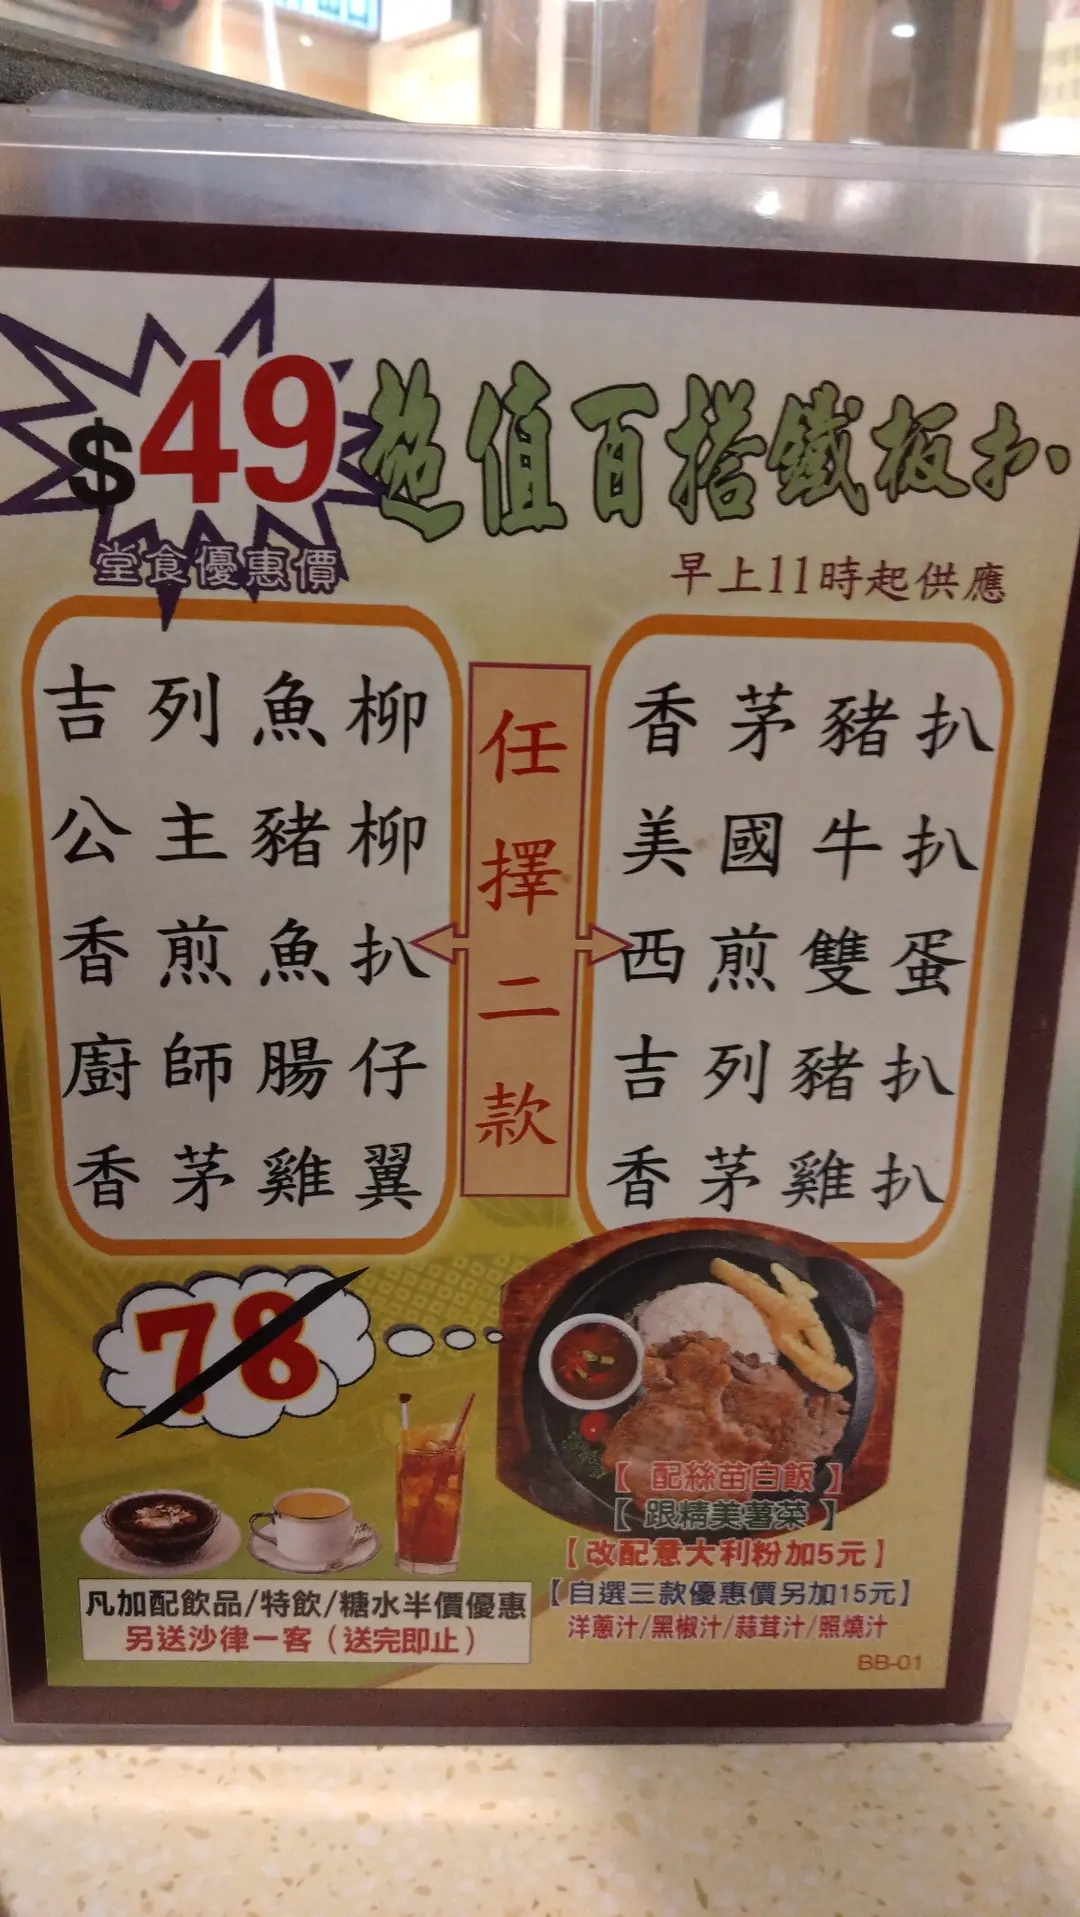 $49
超值百搭鐵板扒
堂食優惠價
早上11時起供應
吉列魚柳
公主豬柳
香煎魚扒
廚師腸仔
香茅雞翼
任擇二款
香茅豬扒
美國牛扒
西煎雙蛋
吉列豬扒
香茅雞扒
78
【配絲苗白飯】
【跟精美薯菜】
【改配意大利粉加5元】
【自選三款優惠價另加15元】
洋蔥汁/黑椒汁/蒜茸汁/照燒汁
凡加配飲品/特飲/糖水半價優惠
另送沙律一客（送完即止）
BB-01